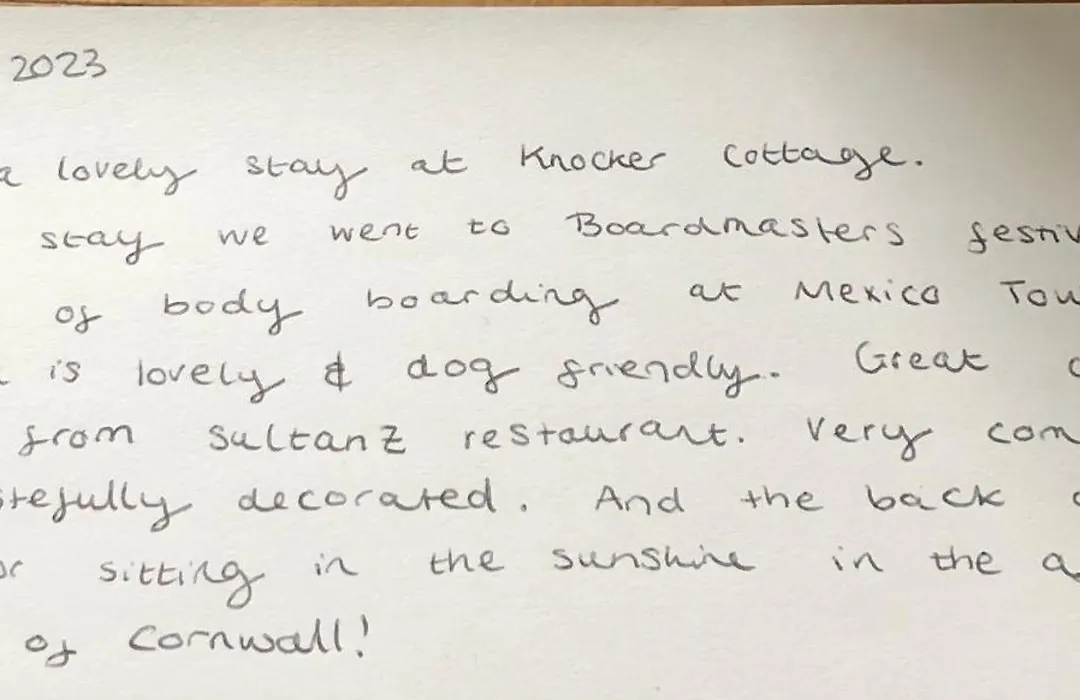 2023
a lovely stay at Knocker Cottage.
stay we went to Boardmasters festiv
of body boarding at Mexico Tow
is lovely & dog friendly. Great
from Sultanz restaurant. Very com
stefully decorated. And the back
or sitting in the sunshine in the a
of Cornwall!